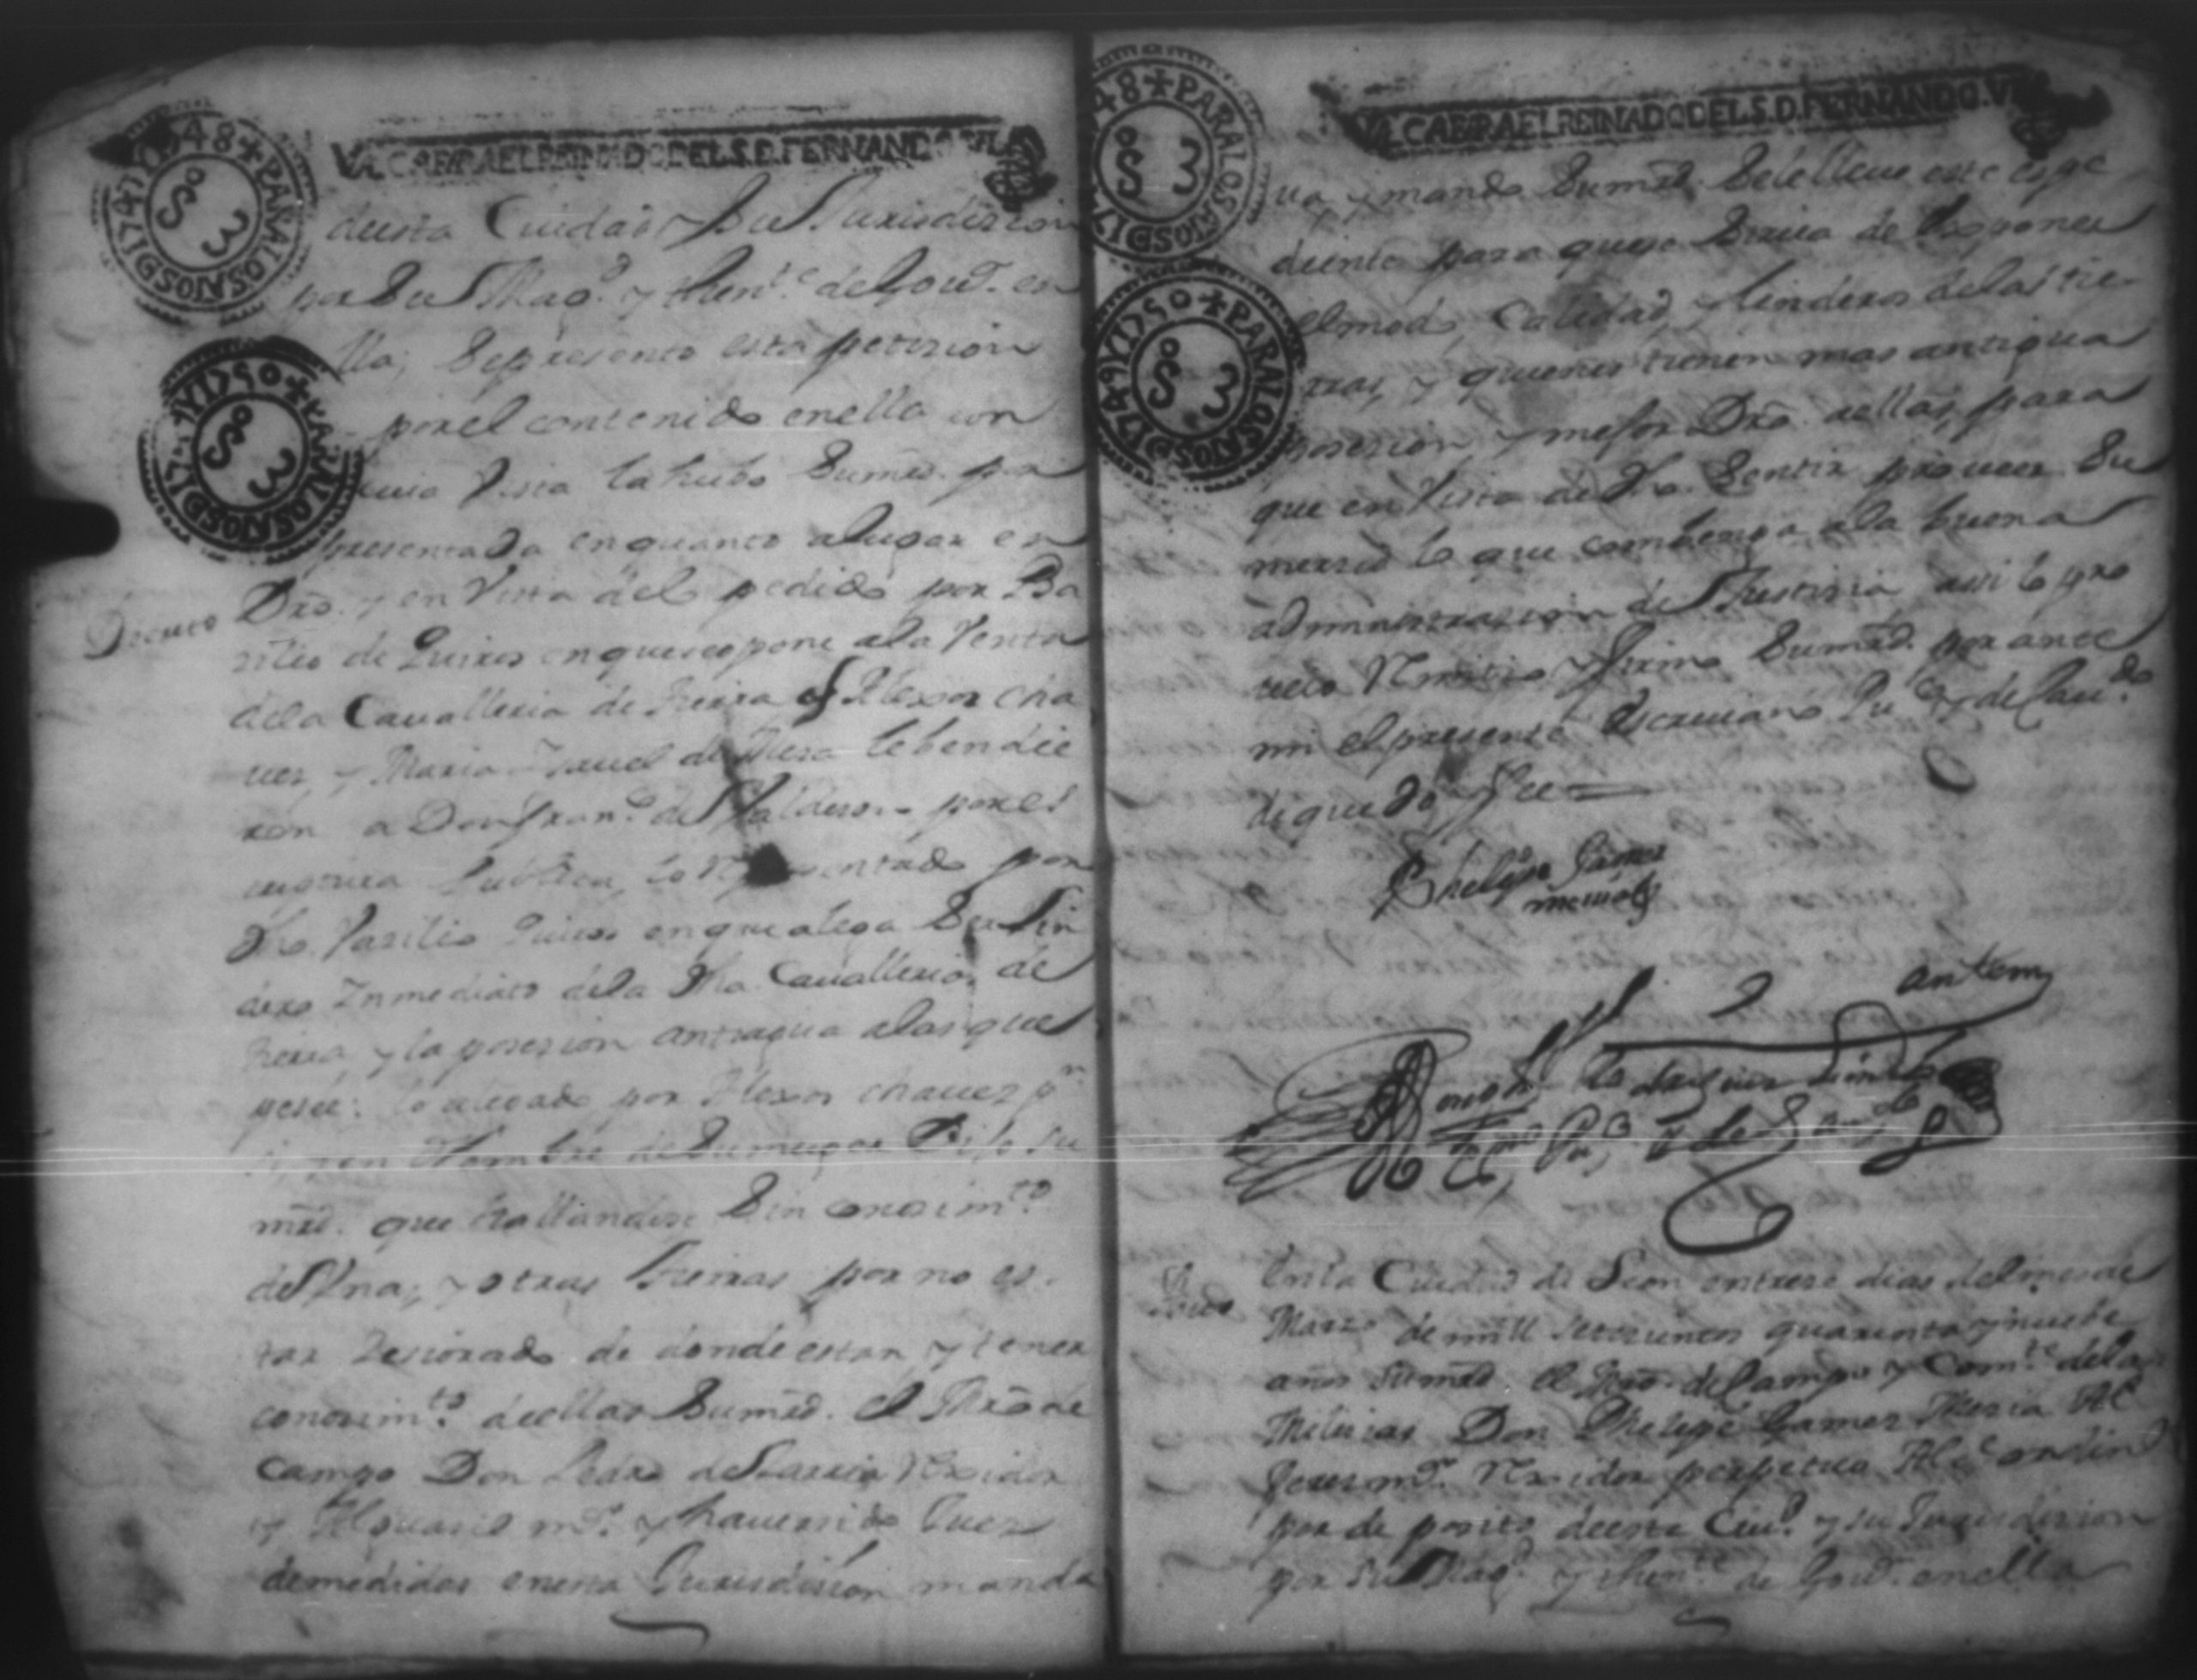 1747 Y 1748 + PARA LOS AÑOS D
S 3
VALGA PARA EL REINADO DEL S.D. FERNANDO VI
deesta Ciudad y Su Jurisdizion
por Su Mag.d y then.te de Gov.r en
lla, Sepresento esta petizion
por el contenido enella con
cuia Vista la hubo Sumrd. por
presentada enquanto alugar en
Decreto
Dro. y en Vista del pedido por Ba
zilio de Quiros enqueseopone ala Venta
dela Cavalleria de tierra q Alexos cha
uez, y Maria de Mesa lebendie
ron a Don Fran.co de Balderr por es
criptura Publica, lo Rep sentado por
dho. Vazilio Quiros enque alega Ser lin
dero Inmediato dela dha. Cavalleria de
tierra, y la posezion antiagua alasque
posee: lo alegado por Alexos chauez p.r
si, y en Nombre de Sumuger Dijo Su
mrd. que hallandose Sin conosim.to
de Vna, y otras tierras por no es
tar Zesiorado de donde estan y tener
conosim.to deellas Sumrd. el Mro de
Campo Don Pedro de Sarria Rexidor
y Alguazil m.r y hauersido Juez
demedidas enesta Jurisdision manda
1747 Y 1748 + PARA LOS AÑOS D
S 3
1749 Y 1750 + PARA LOS AÑOS D
S 3
VALGA PARA EL REINADO DEL S.D. FERNANDO VI
ua, y mando Sumrd. Sele lleue este espe
diente para quese Sirua de Exponer
el modo, Calidad, y linderos delas tie
rras, y quienes tienen mas antigua
posesion, y mejor Dro. aellas, para
que en Vista de dho. Sentir proueer Su
merzed lo que combenga ala buena
administrazion de Justizia assi lo pro
ueio Remitio y firmo Sumrd. por ante
mi el presente Escriuano Pu.co y de Cau.do
de que doy fee =
Phelipe Gamez
mesia
Ante mi
Es.no Pu.co y de Cau.do
En la Ciudad de Leon entreze dias del mes de
Marzo de mill settezientos quarenta y nuebe
años Sumrd. el Mro. de Campo y Com.te delas
Milicias Don Phelipe Gamez Mesia Al.e
Prou.l m.r Rexidor perpetuo Al.e ordin.o
por de posito deesta Ciu.d y su Jurisdizion
por Su Mag.d y then.te de Gov.r enella